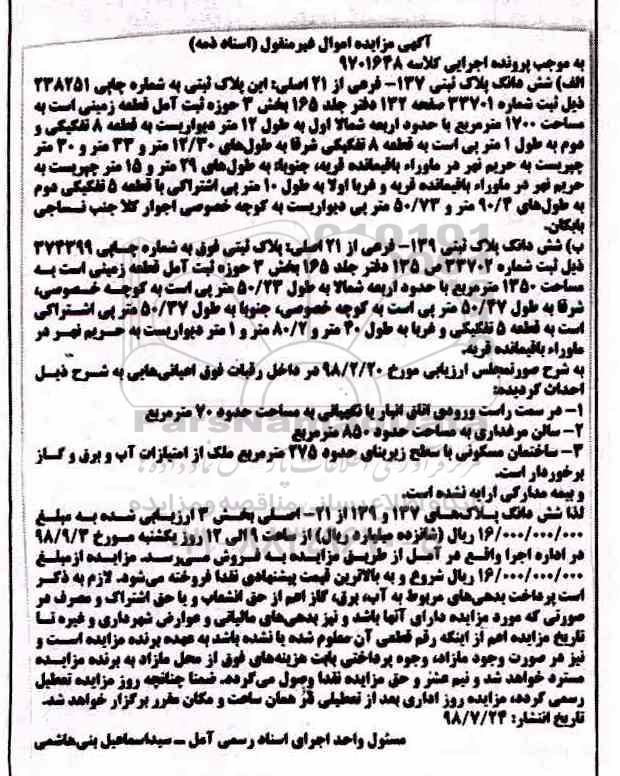 آگهی مزایده اموال غیرمنقول (اسناد ذمه)
به موجب پرونده اجرایی کلاسه ۹۷۰۱۶۴۸
الف) شش دانگ پلاک ثبتی ۱۳۷- فرعی از ۲۱ اصلی: این پلاک ثبتی به شماره چاپی ۲۳۸۲۵۱
ذیل ثبت شماره ۳۳۷۰۱ صفحه ۱۳۲ دفتر جلد ۱۶۵ بخش ۳ حوزه ثبت آمل قطعه زمینی است به
مساحت ۱۷۰۰ مترمربع با حدود اربعه شمالا اول به طول ۱۲ متر دیواریست به قطعه ۸ تفکیکی و
دوم به طول ۱ متر پی است به قطعه ۸ تفکیکی شرقا به طول‌های ۱۲/۳۰ متر و ۳۳ متر و ۳۰ متر
چپریست به حریم نهر در ماوراء باقیمانده قریه، جنوبا: به طول‌های ۲۹ متر و ۱۵ متر چپریست به
حریم نهر در ماوراء باقیمانده قریه و غربا اولا به طول ۱۰ متر پی اشتراکی با قطعه ۵ تفکیکی دوم
به طول‌های ۹۰/۴ متر و ۵۰/۷۳ متر پی دیواریست به کوچه خصوصی اجوار کلا جنب نساجی
بابکان.
ب) شش دانگ پلاک ثبتی ۱۳۹- فرعی از ۲۱ اصلی: پلاک ثبتی فوق به شماره چاپی ۳۷۴۳۹۹
ذیل ثبت شماره ۳۳۷۰۲ ص ۱۳۵ دفتر جلد ۱۶۵ بخش ۳ حوزه ثبت آمل قطعه زمینی است به
مساحت ۱۳۵۰ مترمربع با حدود اربعه شمالا به طول ۵۰/۲۳ متر پی است به کوچه خصوصی،
شرقا به طول ۵۰/۴۷ متر پی است به کوچه خصوصی، جنوبا به طول ۵۰/۳۷ متر پی اشتراکی
است به قطعه ۵ تفکیکی و غربا به طول ۴۰ متر و ۸۰/۲ متر و ۱ متر دیواریست به حریم نهر در
ماوراء باقیمانده قریه.
به شرح صورتمجلس ارزیابی مورخ ۹۸/۲/۲۰ در داخل رقبات فوق اعیانی‌هایی به شرح ذیل
احداث گردیده:
۱- در سمت راست ورودی اتاق انبار یا نگهبانی به مساحت حدود ۷۰ مترمربع
۲- سالن مرغداری به مساحت حدود ۸۵۰ مترمربع
۳- ساختمان مسکونی با سطح زیربنای حدود ۲۷۵ مترمربع ملک از امتیازات آب و برق و گاز
برخوردار است.
و بیمه مدارکی ارایه نشده است.
لذا شش دانگ پلاک‌های ۱۳۷ و ۱۳۹ از ۲۱- اصلی بخش ۳ ارزیابی شده به مبلغ
۱۶/۰۰۰/۰۰۰/۰۰۰ ریال (شانزده میلیارد ریال) از ساعت ۹ الی ۱۲ روز یکشنبه مورخ ۹۸/۹/۳
در اداره اجرا واقع در آمل از طریق مزایده به فروش می‌رسد. مزایده از مبلغ
۱۶/۰۰۰/۰۰۰/۰۰۰ ریال شروع و به بالاترین قیمت پیشنهادی نقدا فروخته می‌شود. لازم به ذکر
است پرداخت بدهی‌های مربوط به آب، برق، گاز اعم از حق انشعاب و یا حق اشتراک و مصرف در
صورتی که مورد مزایده دارای آنها باشد و نیز بدهی‌های مالیاتی و عوارض شهرداری و غیره تا
تاریخ مزایده اعم از اینکه رقم قطعی آن معلوم شده یا نشده باشد به عهده برنده مزایده است و
نیز در صورت وجود مازاد، وجوه پرداختی بابت هزینه‌های فوق از محل مازاد به برنده مزایده
مسترد خواهد شد و نیم عشر و حق مزایده نقدا وصول می‌گردد. ضمنا چنانچه روز مزایده تعطیل
رسمی گردد، مزایده روز اداری بعد از تعطیلی در همان ساعت و مکان مقرر برگزار خواهد شد.
تاریخ انتشار: ۹۸/۷/۲۴
مسئول واحد اجرای اسناد رسمی آمل ـ سیداسماعیل بنی‌هاشمی